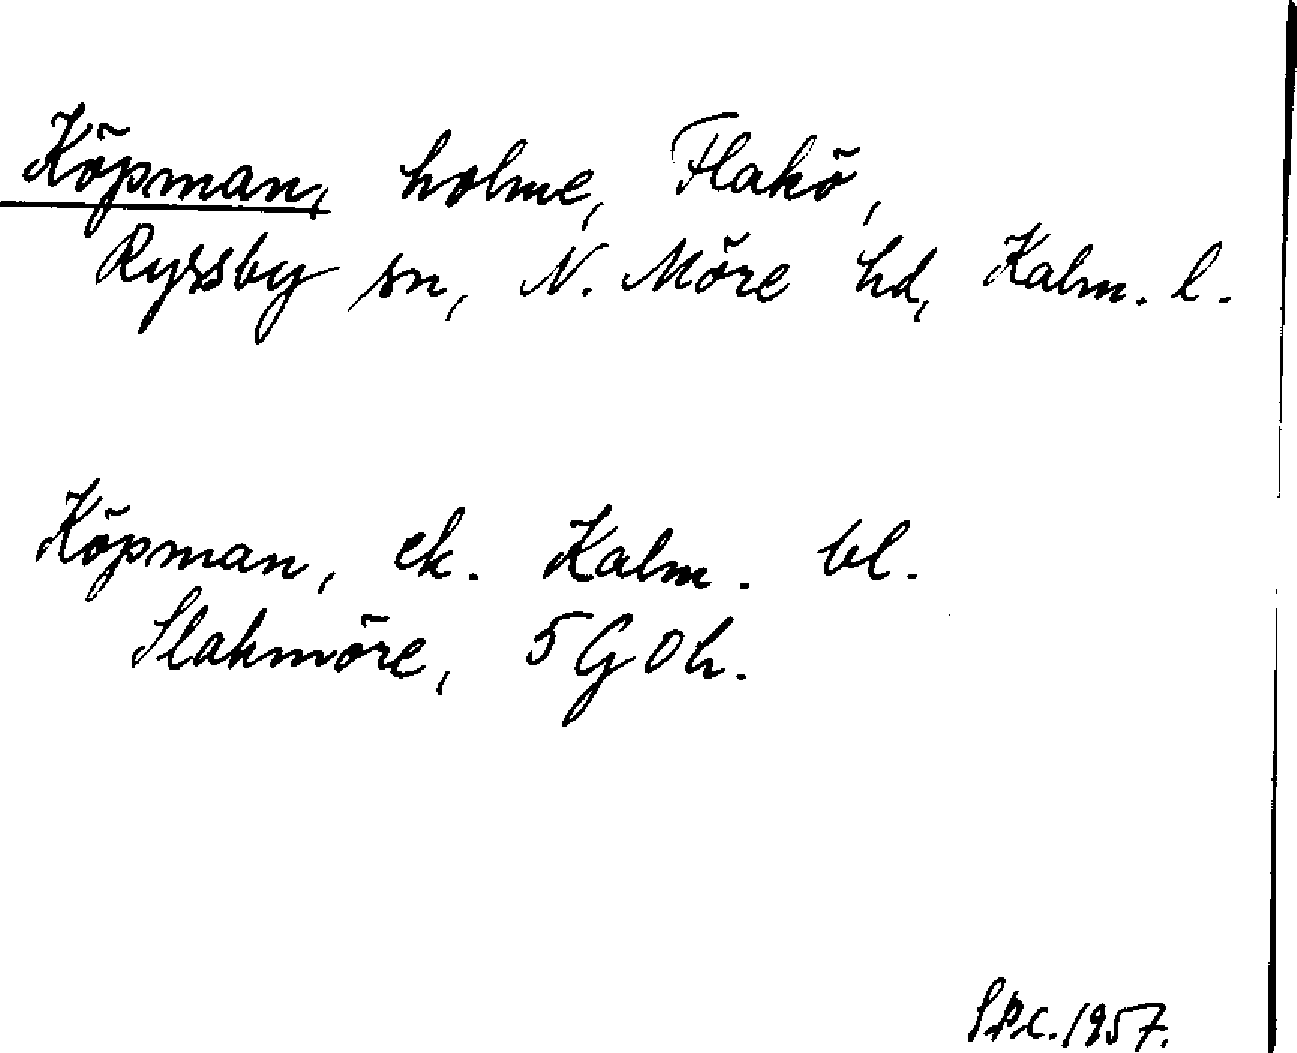 Köpman, holme, Flakö,
Ryssby sn, N. Möre hd, Kalm. l.
Köpman, ek. Kalm. bl.
Slakmöre, 5 G Ö h.
1957.